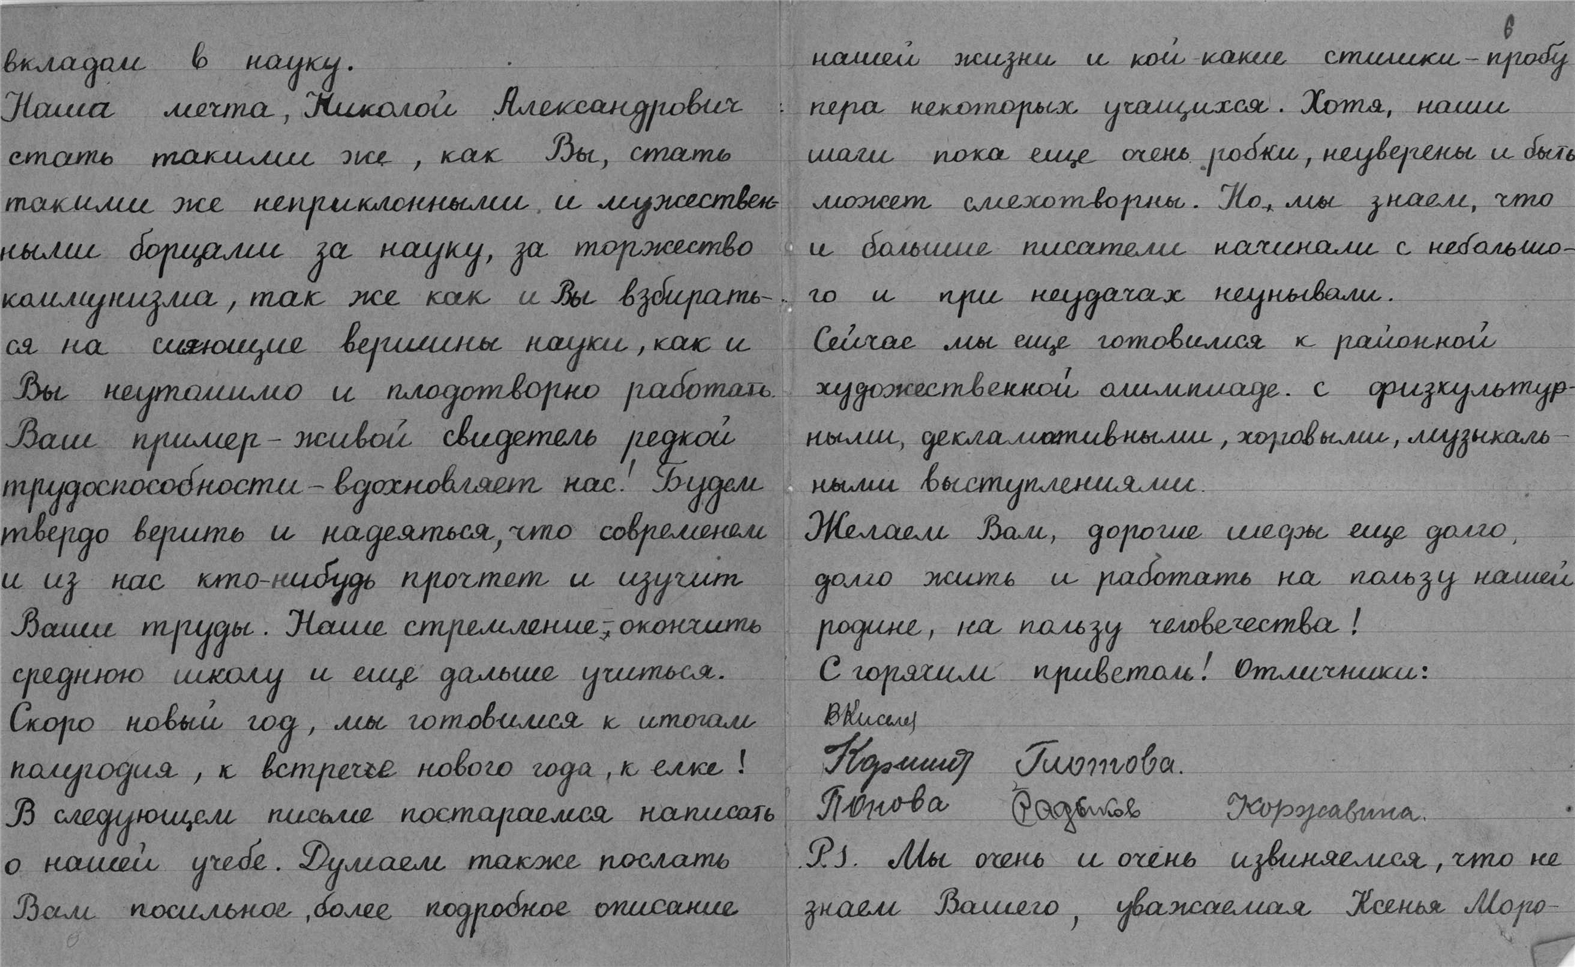 вкладом в науку.
Наша мечта, Николой Александрович
стать такими же, как Вы, стать
такими же неприклонными и мужествен-
ными борцами за науку, за торжество
коммунизма, так же как и Вы взбирать-
ся на сияющие вершины науки, как и
Вы неутомимо и плодотворно работать.
Ваш пример - живой свидетель редкой
трудоспособности - вдохновляет нас! Будем
твердо верить и надеяться, что современем
и из нас кто-нибудь прочтет и изучит
Ваши труды. Наше стремление - окончить
среднюю школу и еще дальше учиться.
Скоро новый год, мы готовимся к итогам
полугодия, к встрече нового года, к елке!
В следующем письме постараемся написать
о нашей учебе. Думаем также послать
Вам посильное, более подробное описание
6
нашей жизни и кой-какие стишки - пробу
пера некоторых учащихся. Хотя, наши
шаги пока еще очень робки, неуверены и быть
может смехотворны. Но, мы знаем, что
и большие писатели начинали с небольшо-
го и при неудачах неунывали.
Сейчас мы еще готовимся к районной
художественной олимпиаде. с физкультур-
ными, декламативными, хоровыми, музыкаль-
ными выступлениями.
Желаем Вам, дорогие шефы еще долго,
долго жить и работать на пользу нашей
родине, на пользу человечества!
С горячим приветом! Отличники:
Глотова.
Попова Радьков Коржавина.
P.S. Мы очень и очень извиняемся, что не
знаем Вашего, уважаемая Ксенья Моро-